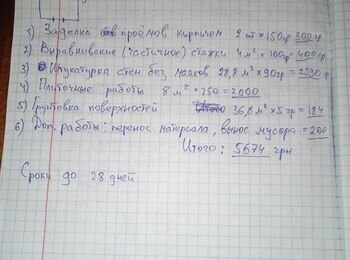 1) Заделка проёмов кирпичем 2 шт × 150 гр = 300 гр
2) Выравнивание (частичное) стяжки 4 м² × 100 гр = 400 гр
3) Штукатурка стен без маяков 28,8 м² × 90 гр = 2590 гр
4) Плиточные работы 8 м² · 250 = 2000
5) Грунтовка поверхностей 36,8 м² × 5 гр = 184
6) Доп. работы: перенос материала, вынос мусора = 200
Итого: 5674 грн
Сроки до 28 дней